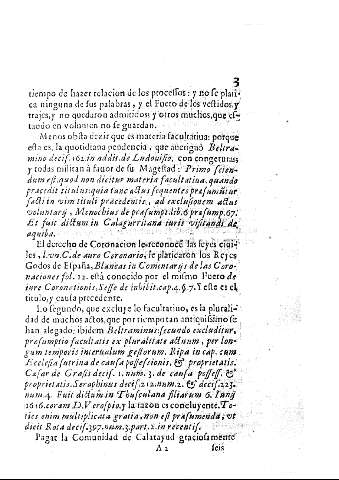 3
tiempo de hazer relacion de los processos: y no se plati
ca ninguna de sus palabras, y el Fuero de los vestidos, y
trajes, y no quedaron admitidos y otros muchos, que es-
tando en volumen no se guardan.
Menos obsta dezir que es materia facultatiua: porque
esta es, la quotidiana pendencia, que aueriguó Beltra-
mino decis. 162. in addit. de Ludouisio, con congeturas
y todas militan à fauor de su Magestad: Primo scien-
dum est, quod non dicitur materia facultatiua, quando
præcedit titulus: quia tunc actus sequentes præsumuntur
facti in vim tituli præcedentis, ad exclusionem actus
voluntarij, Menochius de præsumpt. lib. 6 præsump. 67.
Et fuit dictum in Calaguritana iuris visitandi de
aqueba.
El derecho de Coronacion le reconocē las leyes ciui-
les, l. vn. C. de auro Coronario, le platicaron los Reyes
Godos de España, Blancas in Comentarijs de las Coro-
naciones fol. 22. està conocido por el mismo Fuero de
iure Coronationis, Sesse de inhibit. cap. 4. §. 7. Y este es el
titulo, y causa precedente.
Lo segundo, que excluye lo facultatiuo, es la plurali-
dad de muchos actos, que por tiempo tan antiquissimo se
han alegado: ibidem Beltraminus: secundo excluditur,
præsumptio facultatis ex pluralitate actuum, per lon-
gum temporis interuallum gestorum. Ripa in cap. cum
Ecclesia sutrina de causa possessionis, & proprietatis.
Casar de Grasis decis. 1. num. 3. de causa possess. &
proprietatis. Seraphinus decis. 212. num. 2. & decis. 223.
num. 4. Fuit dictum in Thusculana filiarum 6. Iunij
1616. coram D. Verospio, y la razon es concluyente. To-
ties enim multiplicata gratia, non est præsumenda, vt
dicit Rota decis. 397. num. 3. part. 2. in recentis.
Pagar la Comunidad de Calatayud graciosamente
A 2 seis